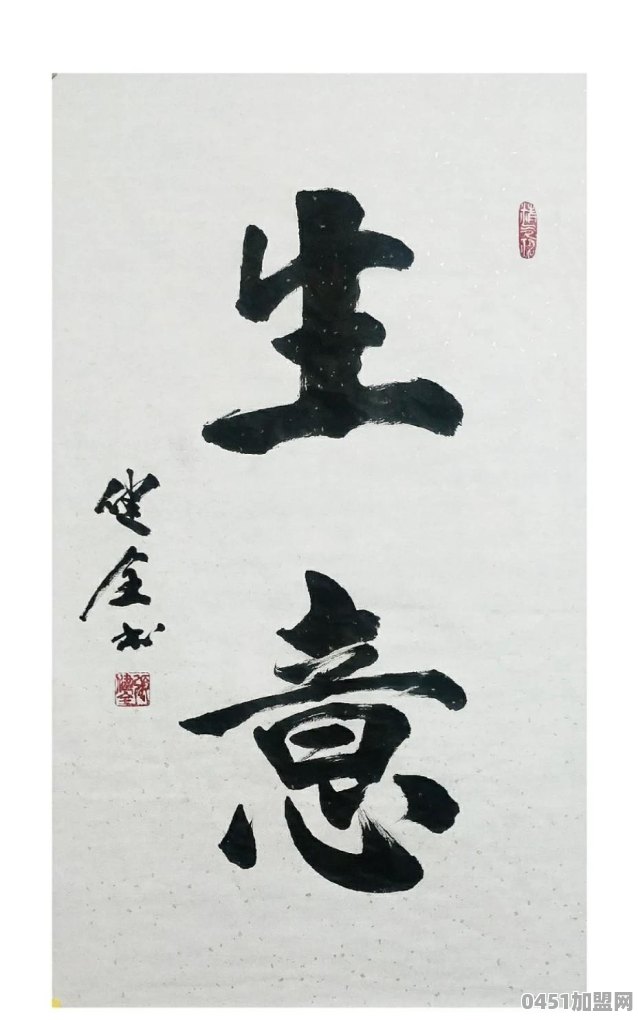 生意
健全书
0451加盟网